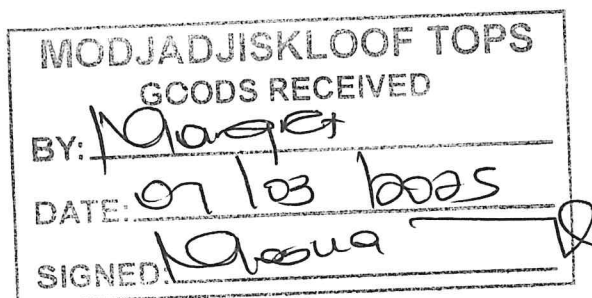 MODJADJISKLOOF TOPS
GOODS RECEIVED
BY: Margret
DATE: 07/03/2025
SIGNED: